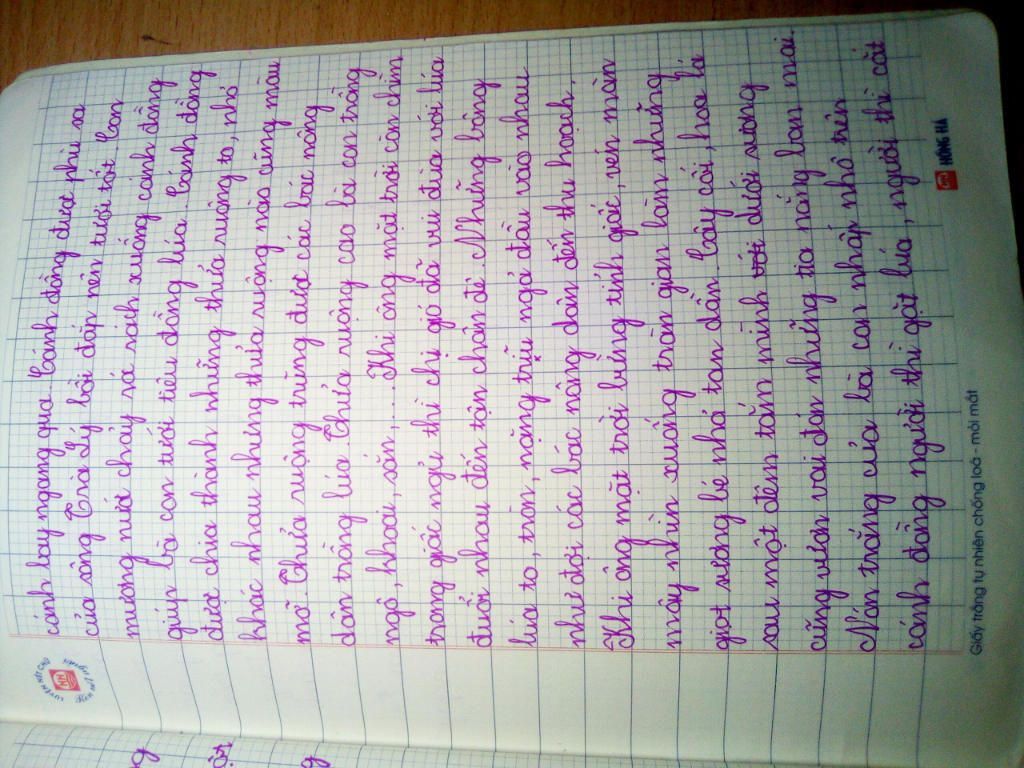 cánh bay ngang qua. Cánh đồng được phù sa
của sông Trà Lý bồi đắp nên tươi tốt. Con
mương nước chảy rá rách xuống cánh đồng
giúp bà con tưới tiêu đồng lúa. Cánh đồng
được chia thành những thửa ruộng to, nhỏ
khác nhau nhưng thửa ruộng nào cũng màu
mỡ. Thửa ruộng trũng được các bác nông
dân trồng lúa. Thửa ruộng cao bà con trồng
ngô, khoai, sắn,.... Khi ông mặt trời còn chìm
trong giấc ngủ thì chị gió đã vui đùa với lúa
đuổi nhau đến tận chân đê. Những bông
lúa to, tròn, nặng trĩu ngả đầu vào nhau
như đợi các bác nông dân đến thu hoạch.
Khi ông mặt trời bừng tỉnh giấc, vén màn
mây nhìn xuống trần gian làm những
giọt sương bé nhỏ tan dần. Cây cối, hoa lá
sau một đêm tắm mình với dưới sương
cũng vươn vai đón những tia nắng ban mai.
Nón trắng của bà con nhấp nhô trên
cánh đồng người thì gặt lúa, người thì cắt
Giấy trắng tự nhiên chống loá - mỏi mắt
HỒNG HÀ
LUYỆN NÉT CHỮ
Rèn nết người
HH